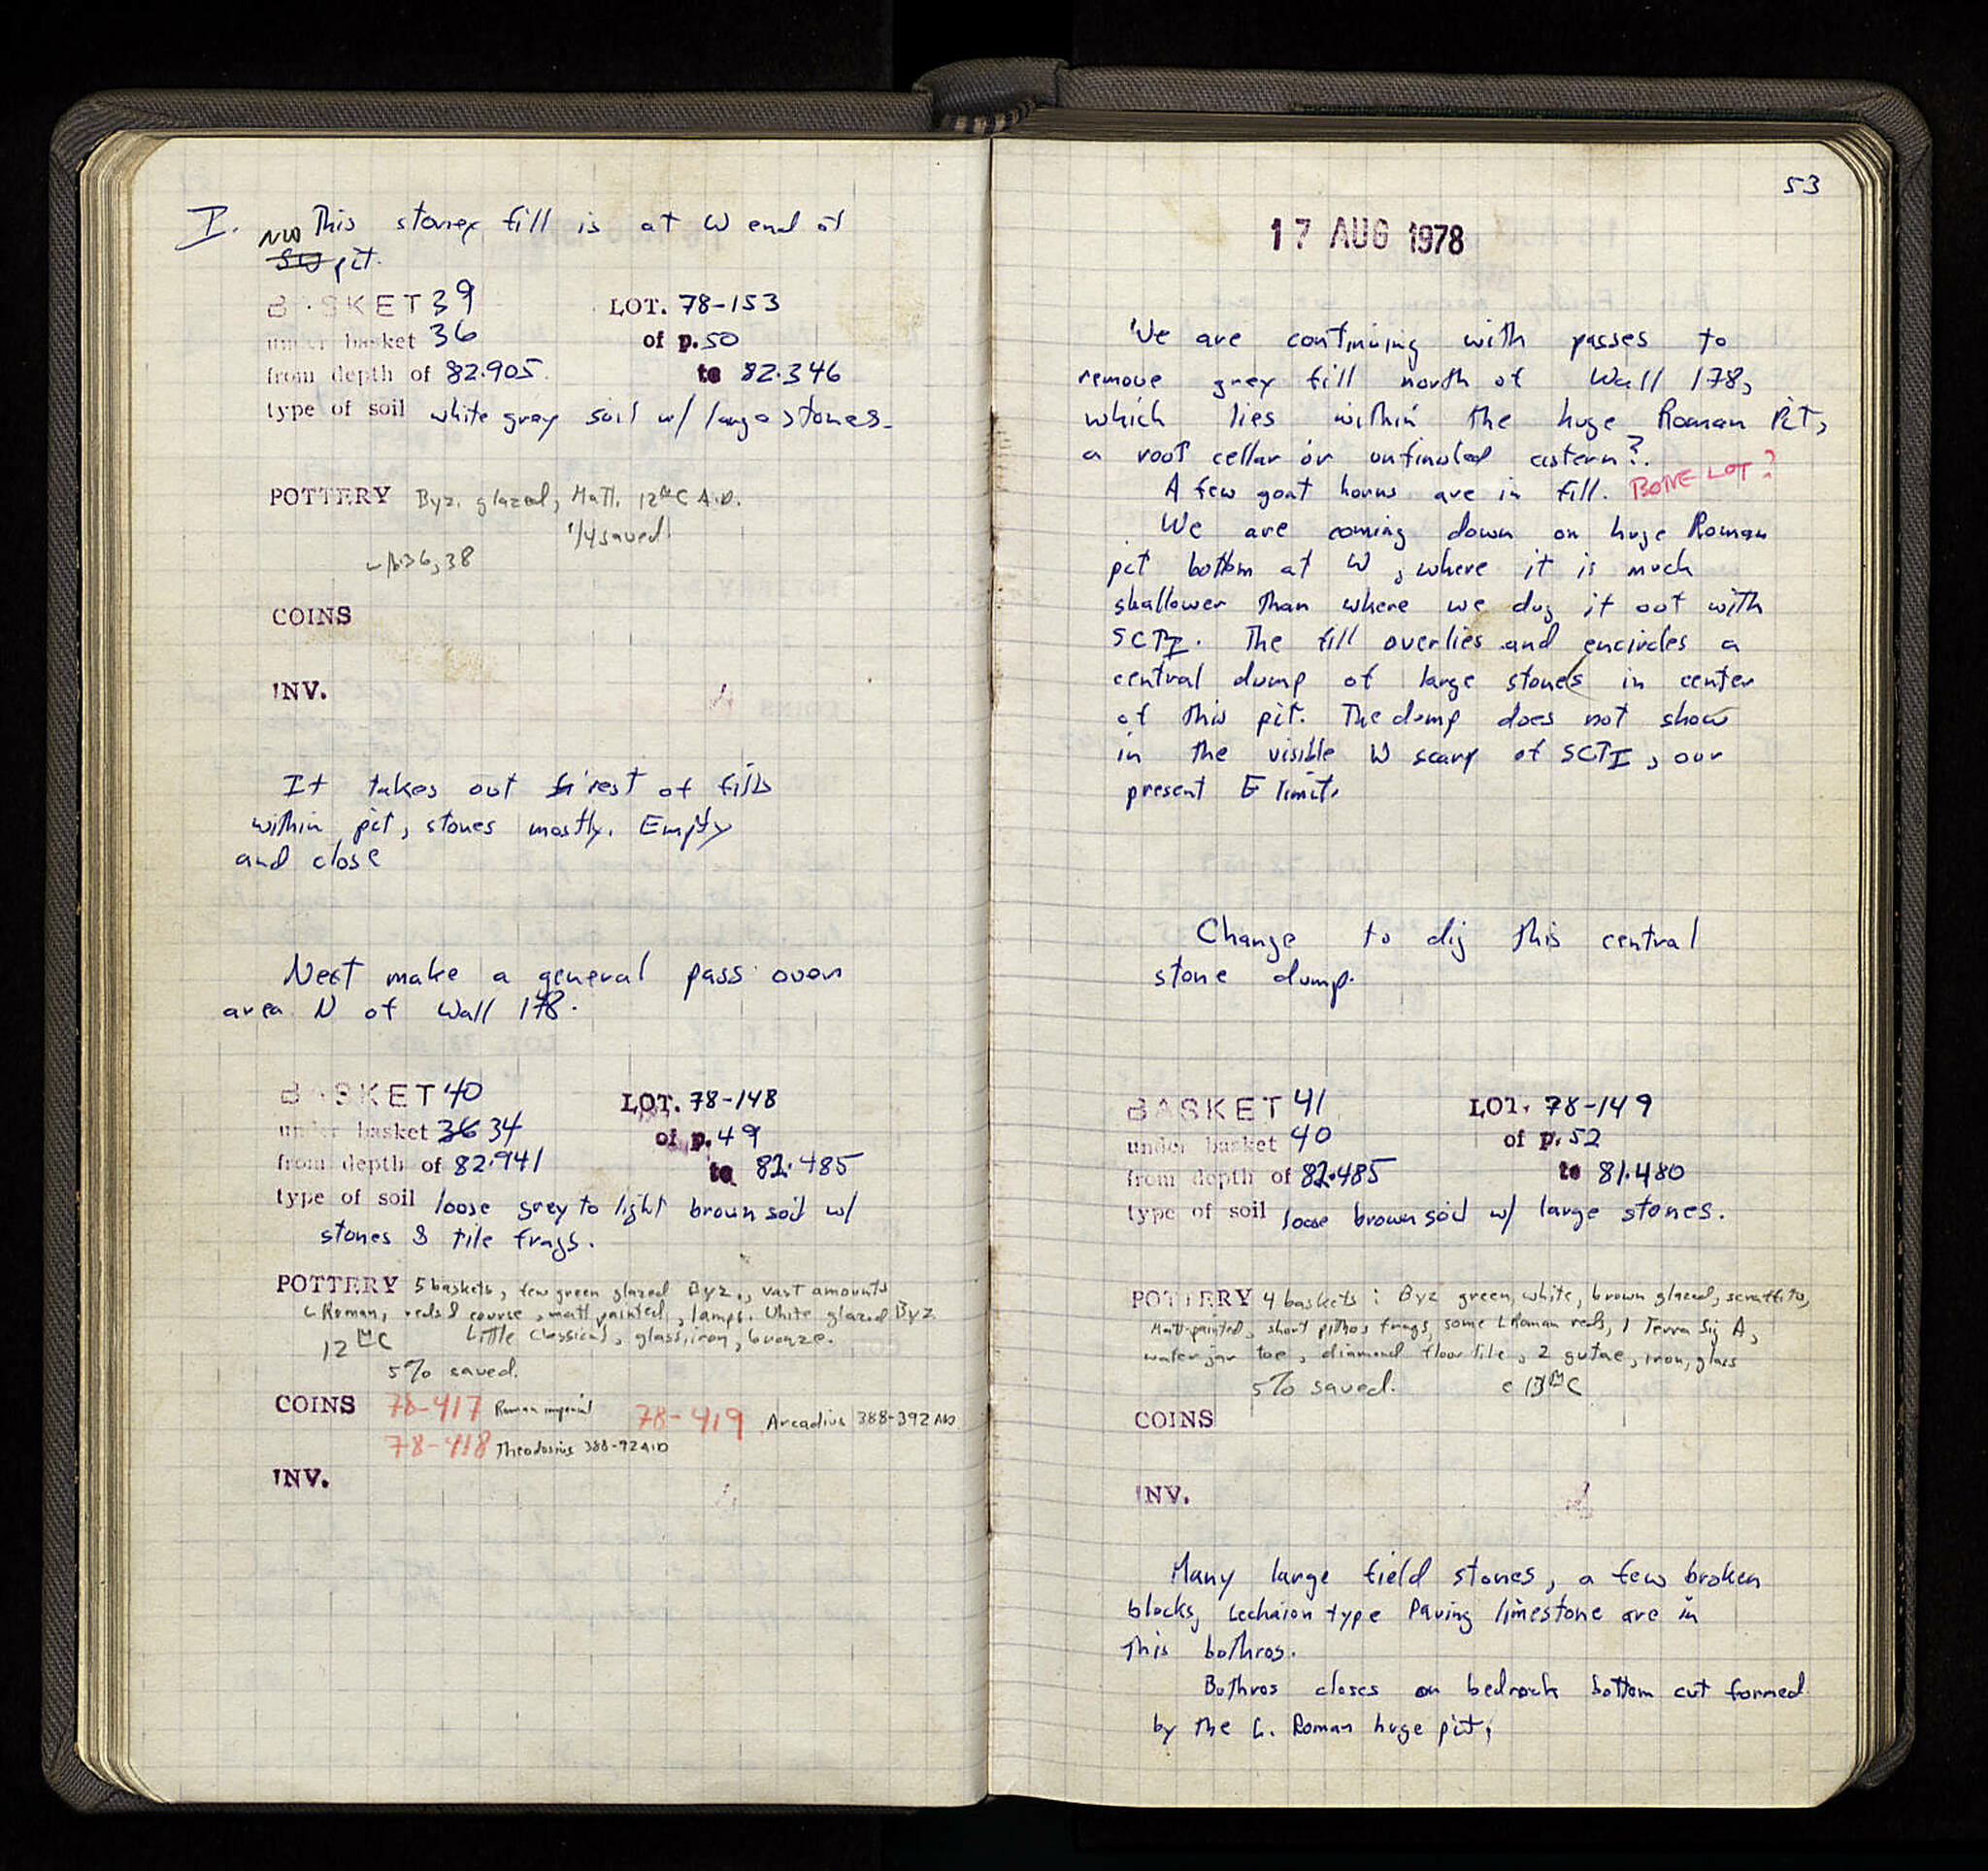 I. This stoney fill is at W end of
NW
SW pit.
BASKET 39 LOT. 78-153
under basket 36 of p. 50
from depth of 82.905 to 82.346
type of soil white gray soil w/ large stones.
POTTERY Byz. glazed, Matt. 12th C A.D.
1/4 saved!
36, 38
COINS
INV.
It takes out rest of fills
within pit, stones mostly. Empty
and close
Next make a general pass over
area N of Wall 178.
BASKET 40 LOT. 78-148
under basket 36 34 of p. 49
from depth of 82.941 to 82.485
type of soil loose grey to light brown soil w/
stones & tile frags.
POTTERY 5 baskets, few green glazed Byz., vast amounts
L Roman, reds & course, matt painted, lamps. White glazed Byz
12th C Little Classical, glass, iron, bronze.
5% saved.
COINS 78-417 Roman imperial 78-419 Arcadius 388-392 AD
78-418 Theodosius 388-92 A.D
INV.
53
17 AUG 1978
We are continuing with passes to
remove grey fill north of Wall 178,
which lies within the huge Roman Pit,
a root cellar or unfinished cistern?.
A few goat horns are in fill. BONE LOT?
We are coming down on huge Roman
pit bottom at W, where it is much
shallower than where we dug it out with
SCTI. The fill overlies and encircles a
central dump of large stones in center
of this pit. The dump does not show
in the visible W scarp of SCTI, our
present E limit.
Change to dig this central
stone dump.
BASKET 41 LOT. 78-149
under basket 40 of p. 52
from depth of 82.485 to 81.480
type of soil loose brown soil w/ large stones.
POTTERY 4 baskets: Byz green, white, brown glazed, scraffito,
Matt-painted, short pithos frags, some L Roman reds, 1 Terra Sig A,
water jar toe, diamond floor tile, 2 gutae, iron, glass
5% saved. c 13th C
COINS
INV.
Many large field stones, a few broken
blocks, Lechaion type Paving limestone are in
this bothros.
Bothros closes on bedrock bottom cut formed
by the L. Roman huge pit.